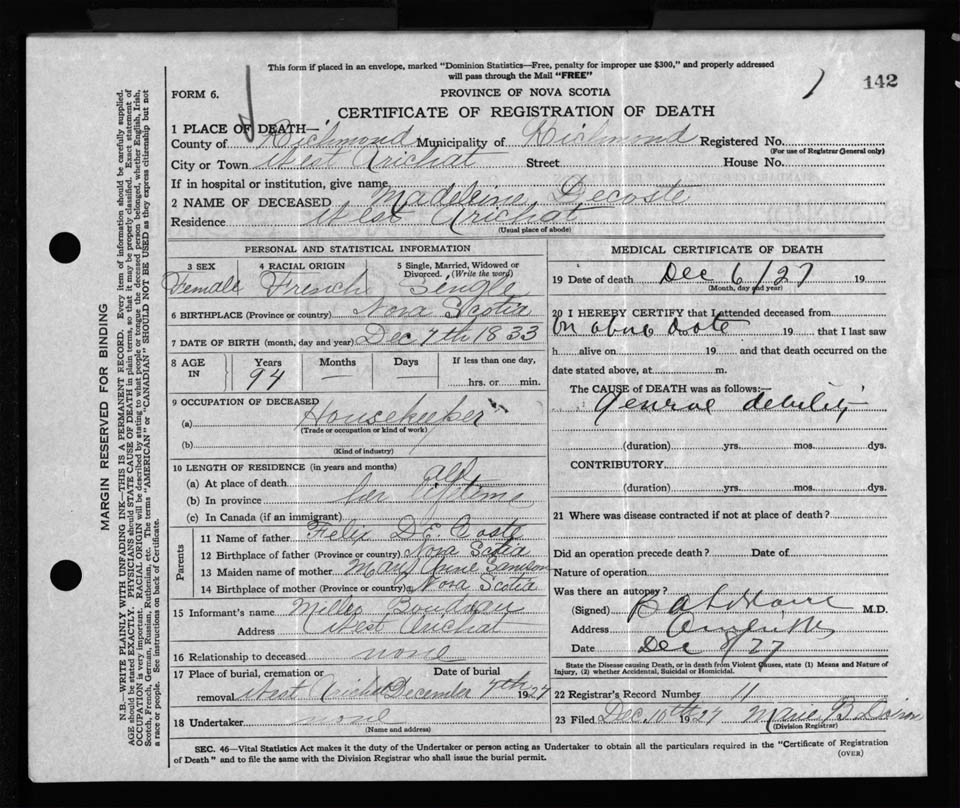 This form if placed in an envelope, marked "Dominion Statistics—Free, penalty for improper use $300," and properly addressed
will pass through the Mail "FREE"
142
FORM 6.
PROVINCE OF NOVA SCOTIA
CERTIFICATE OF REGISTRATION OF DEATH
1 PLACE OF DEATH—
County of Richmond Municipality of Richmond Registered No.
(For use of Registrar General only)
City or Town West Arichat Street House No.
If in hospital or institution, give name
2 NAME OF DECEASED Madeleine Decoste
Residence West Arichat
(Usual place of abode)
PERSONAL AND STATISTICAL INFORMATION
3 SEX 4 RACIAL ORIGIN 5 Single, Married, Widowed or
Divorced. (Write the word)
Female French Single
6 BIRTHPLACE (Province or country) Nova Scotia
7 DATE OF BIRTH (month, day and year) Dec 7th 1833
8 AGE IN Years Months Days If less than one day,
94 — — hrs. or min.
9 OCCUPATION OF DECEASED
(a) Housekeeper
(Trade or occupation or kind of work)
(b)
(Kind of industry)
10 LENGTH OF RESIDENCE (in years and months)
(a) At place of death all
(b) In province her lifetime
(c) In Canada (if an immigrant)
Parents
11 Name of father Felix De Coste
12 Birthplace of father (Province or country) Nova Scotia
13 Maiden name of mother Mary Anne Samson
14 Birthplace of mother (Province or country) Nova Scotia
15 Informant's name
Address West Arichat
16 Relationship to deceased none
17 Place of burial, cremation or Date of burial
removal West Arichat December 7th 1927
18 Undertaker none
(Name and address)
MEDICAL CERTIFICATE OF DEATH
19 Date of death Dec 6/27 19
(Month, day and year)
20 I HEREBY CERTIFY that I attended deceased from
on above date 19 that I last saw
h alive on 19 and that death occurred on the
date stated above, at m.
The CAUSE of DEATH was as follows:—
General debility
(duration) yrs. mos. dys.
CONTRIBUTORY
(duration) yrs. mos. dys.
21 Where was disease contracted if not at place of death?
Did an operation precede death? Date of
Nature of operation
Was there an autopsy?
(Signed) M.D.
Address
Date Dec 8/27
State the Disease causing Death, or in death from Violent Causes, state (1) Means and Nature of
Injury, (2) whether Accidental, Suicidal or Homicidal.
22 Registrar's Record Number 11
23 Filed Dec 10th 1927 Marie B
(Division Registrar)
SEC. 46—Vital Statistics Act makes it the duty of the Undertaker or person acting as Undertaker to obtain all the particulars required in the "Certificate of Registration
of Death" and to file the same with the Division Registrar who shall issue the burial permit.
(OVER)
MARGIN RESERVED FOR BINDING
N.B.—WRITE PLAINLY WITH UNFADING INK—THIS IS A PERMANENT RECORD. Every item of information should be carefully supplied.
AGE should be stated EXACTLY. PHYSICIANS should STATE CAUSE OF DEATH in plain terms, so that it may be properly classified. Exact statement of
OCCUPATION is very important. RACIAL ORIGIN will be described by stating to what people or tongue the deceased person belonged, whether English, Irish,
Scotch, French, German, Russian, Ruthenian, etc. The terms "AMERICAN" or "CANADIAN" SHOULD NOT BE USED as they express citizenship but not
a race or people. See instructions on back of Certificate.